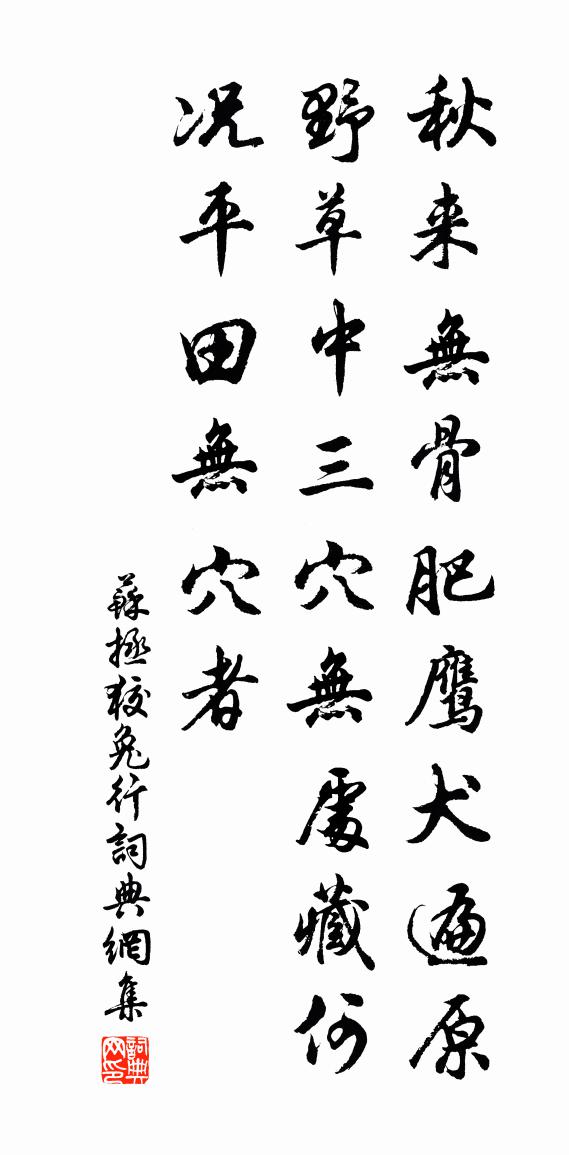 秋来無骨肥鷹犬遍原
野草中三穴無處藏何
况平田無穴者
蘇拯狡兔行詞典網集
詞典网印